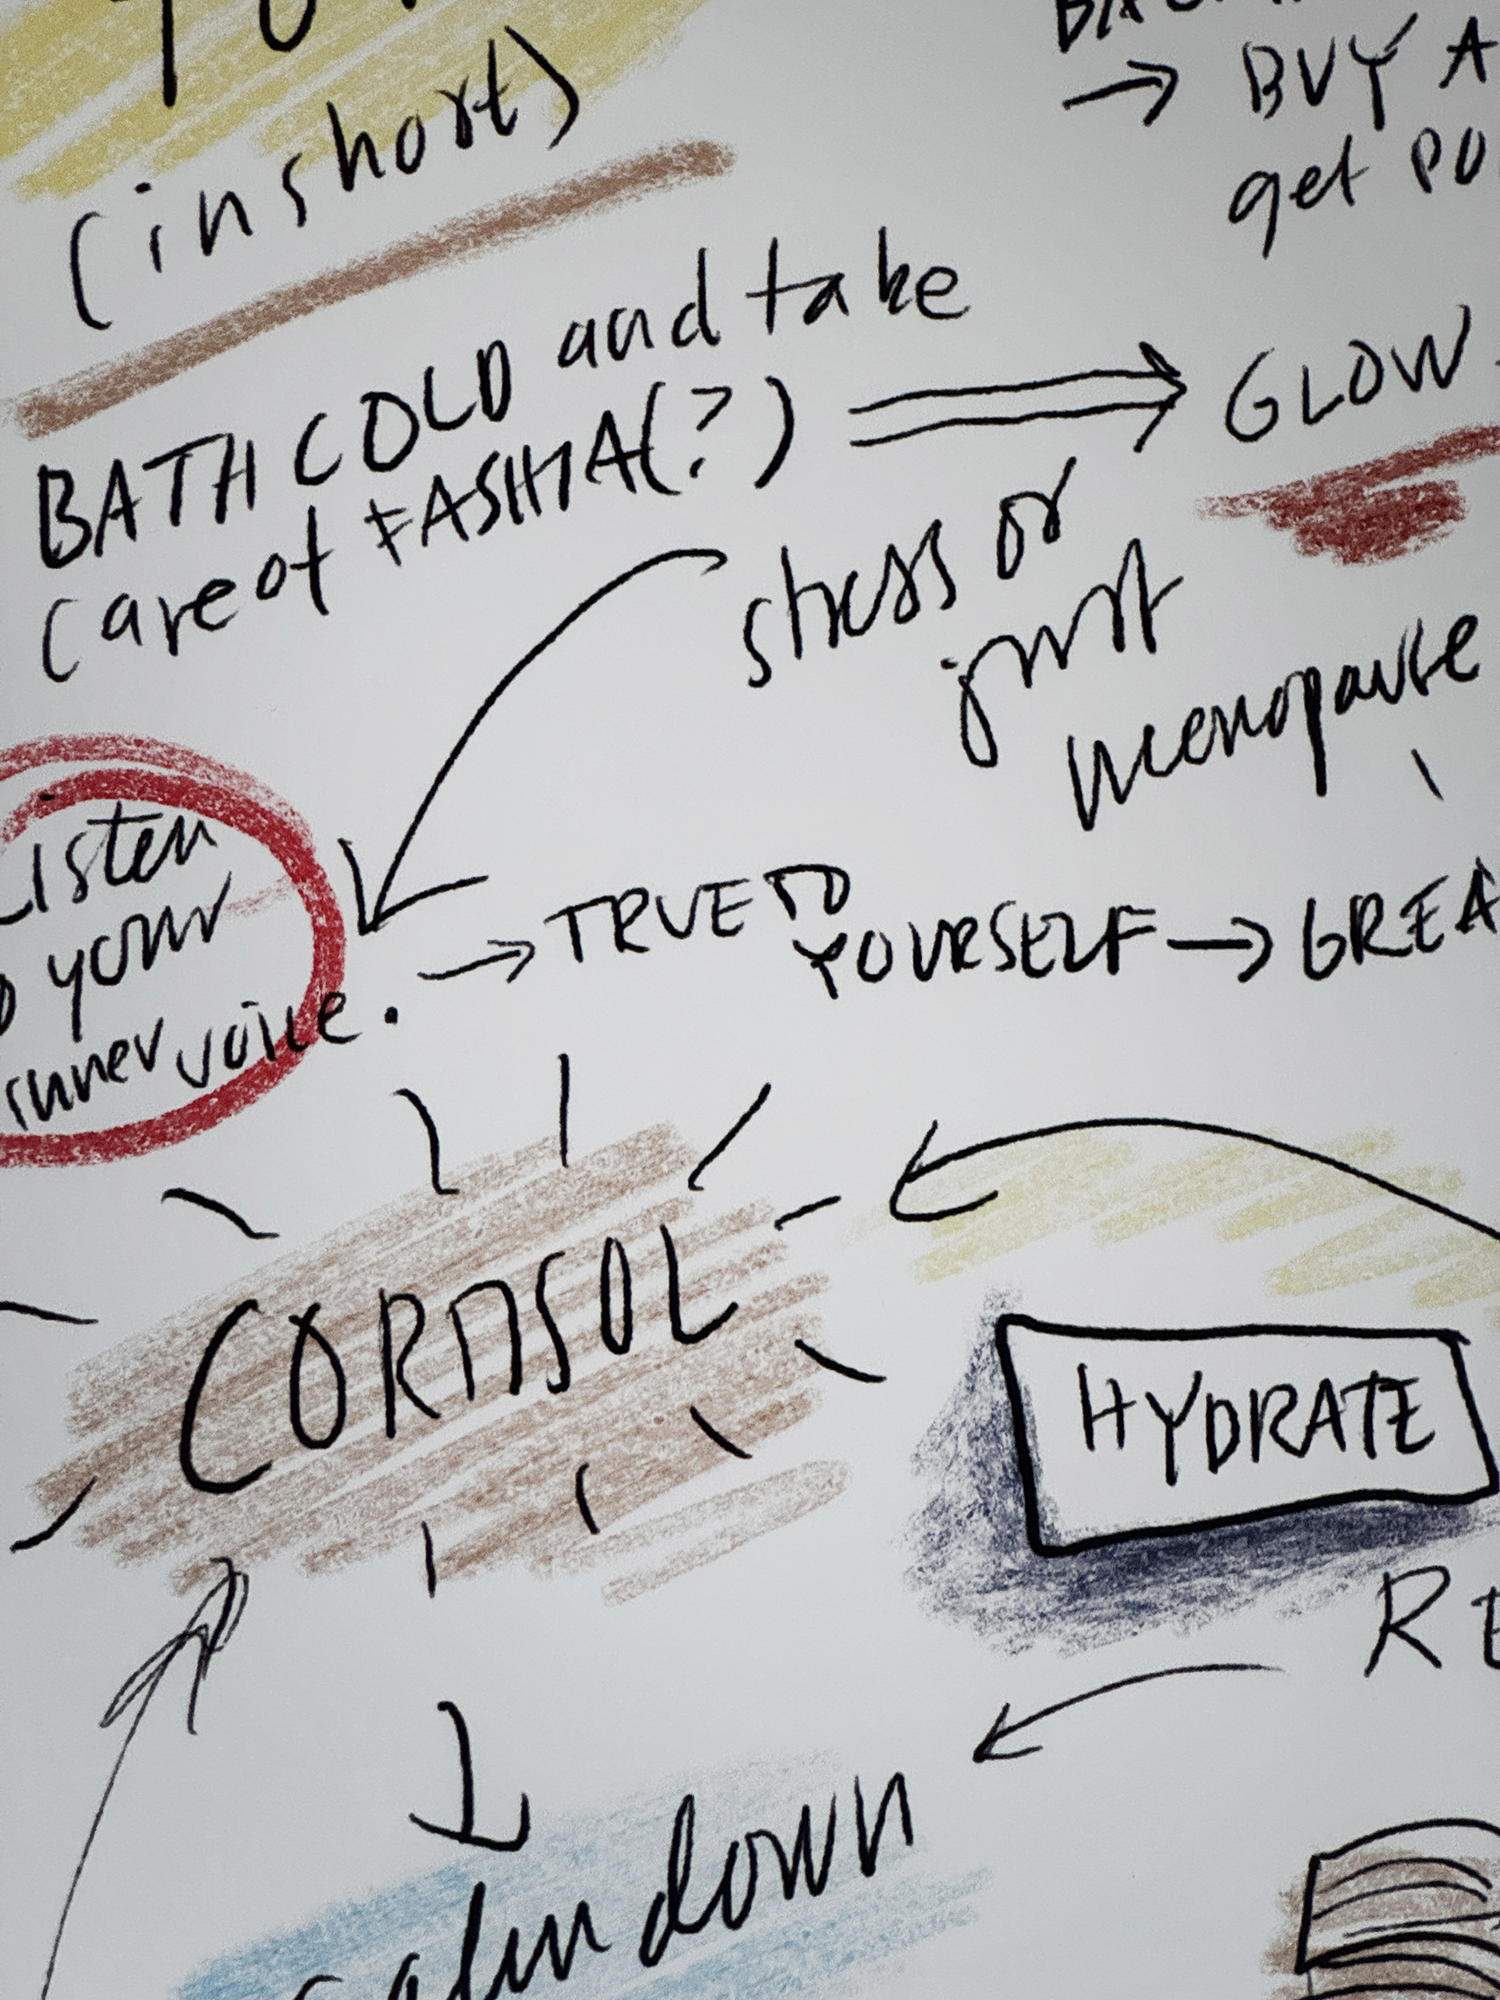 (in short)
→ BUY A
get
BATH COLD and take
care of FASHIA(?) ⇒ GLOW
stress or
just
menopause
Listen
your
inner voice.
→ TRUE TO
YOURSELF → GREA
CORTISOL
HYDRATE
RE
calm down